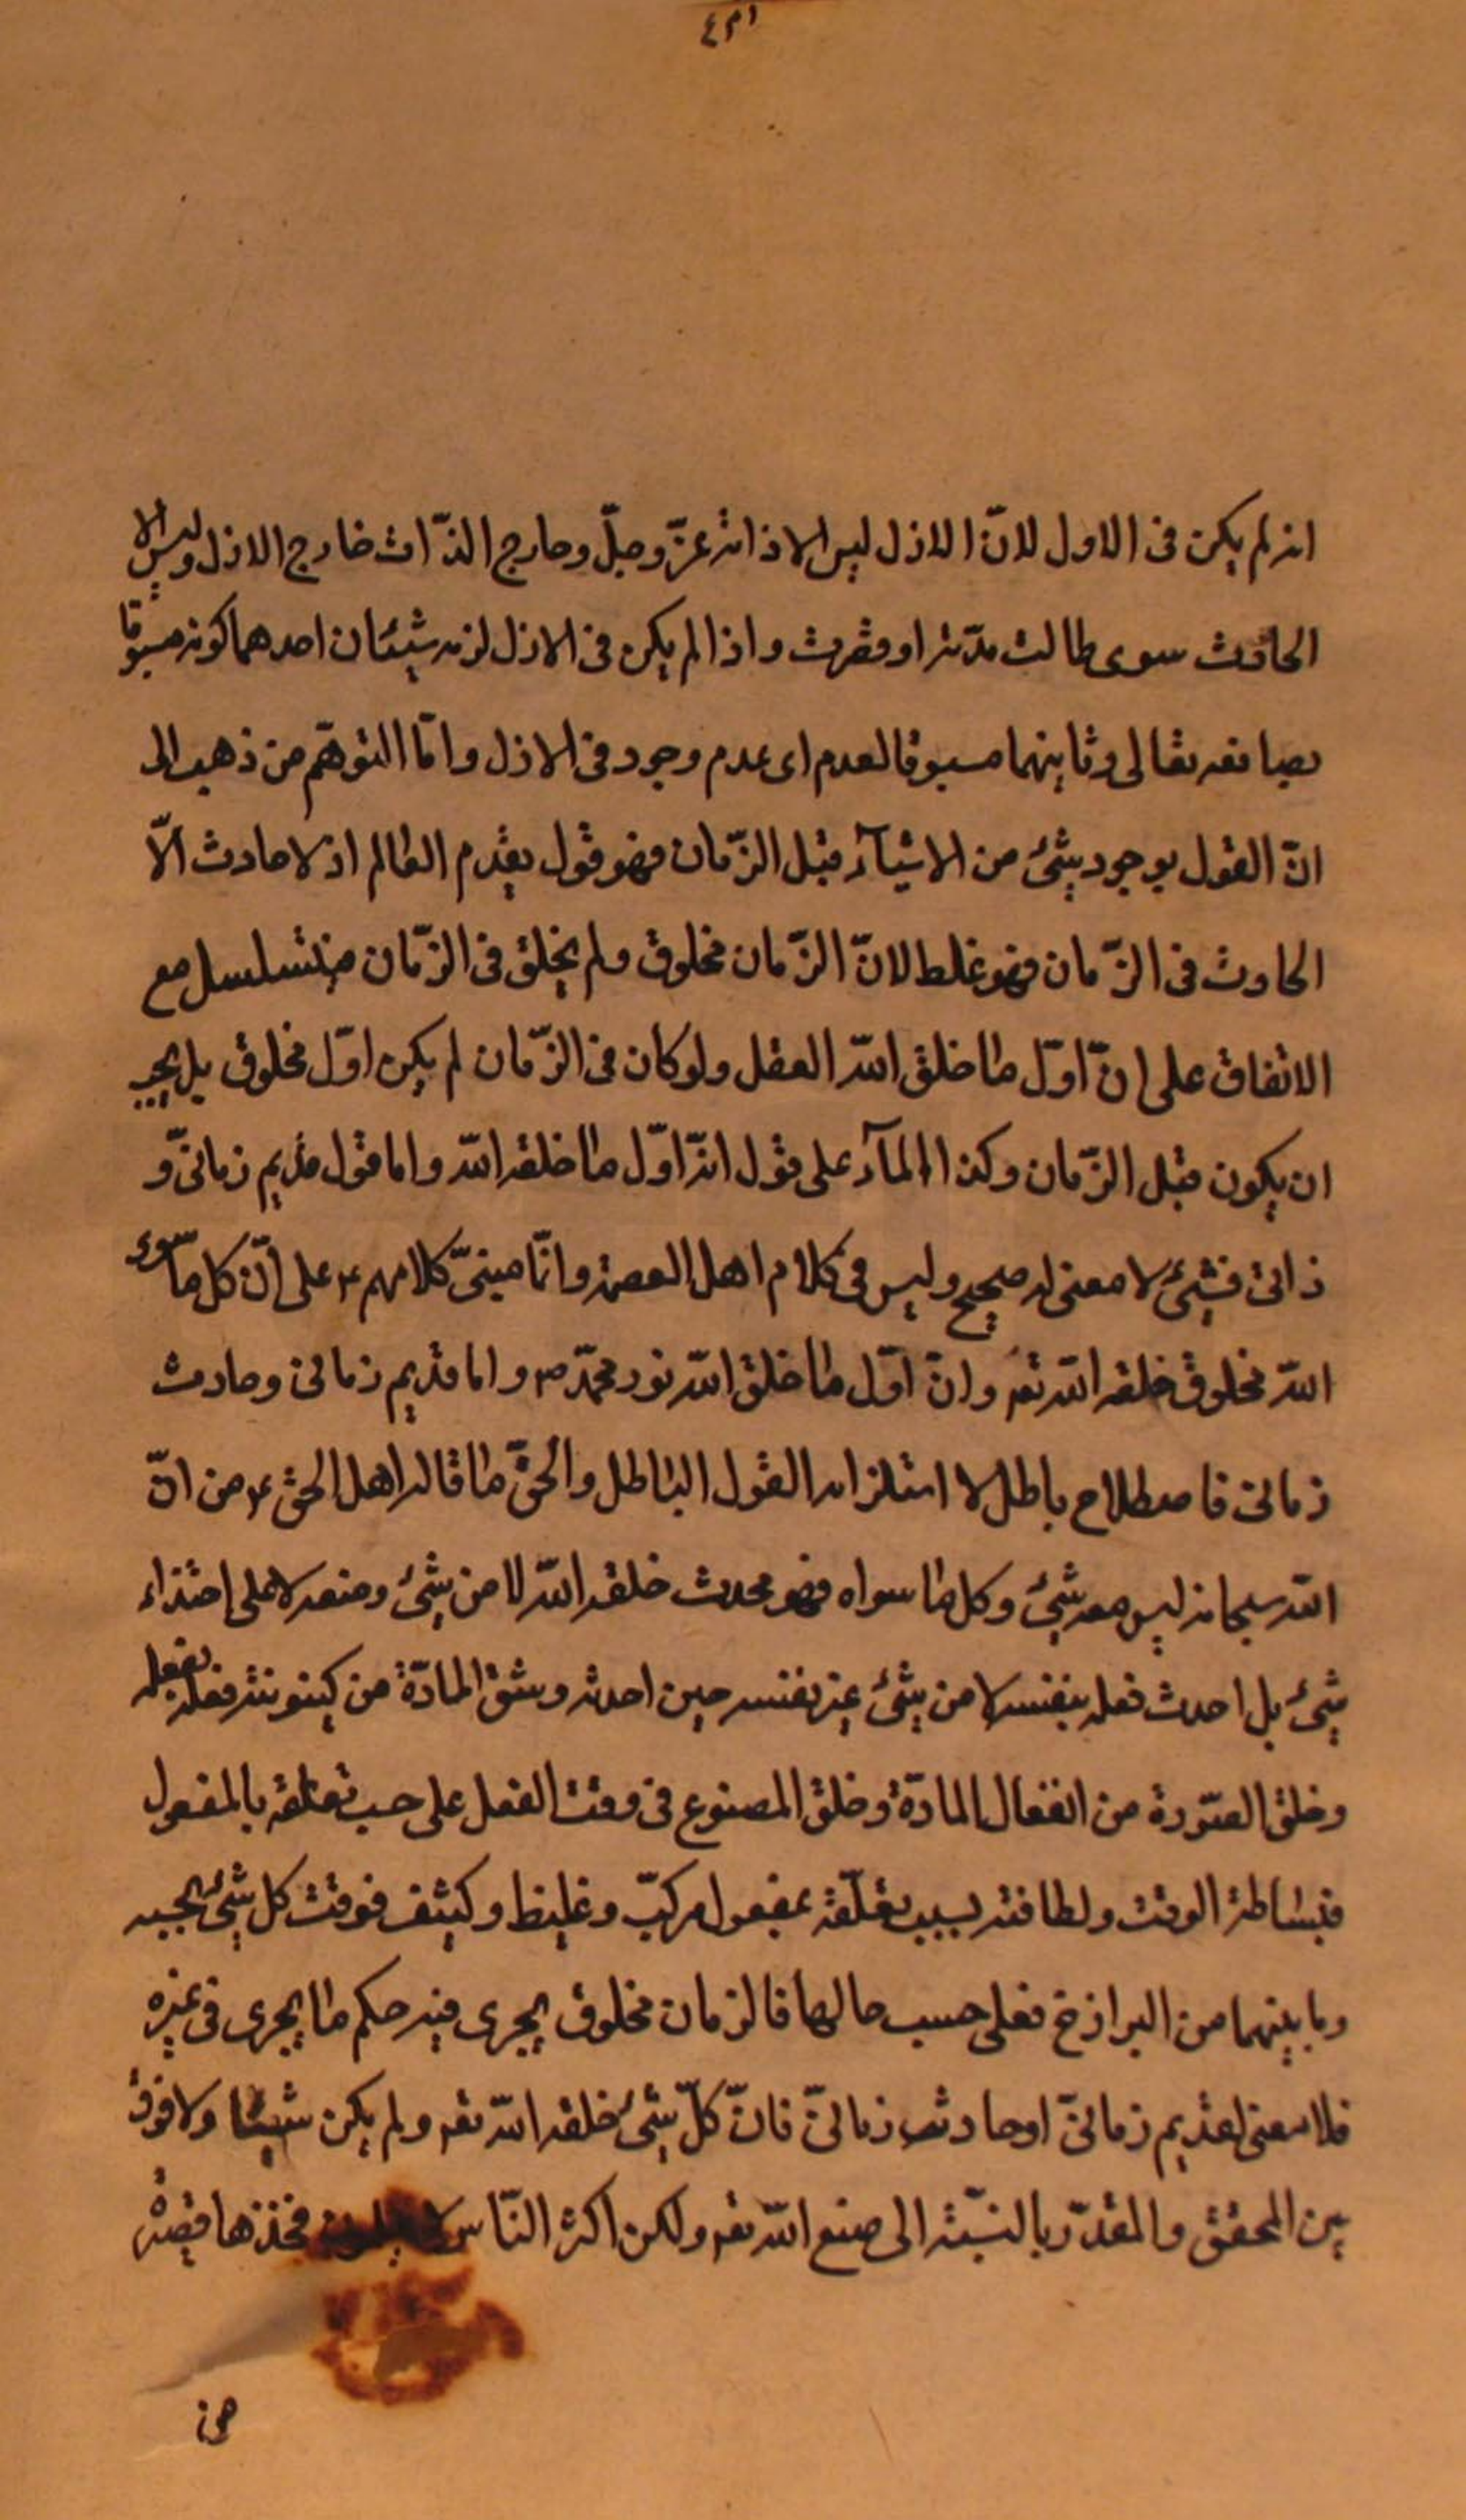 انه لم يكن فى الاول لانّ الازل ليس الا ذاته عزّ وجلّ وخارج الذّات خارج الازل وليس الا
الحادث سوى طالت مدّته او قصرت واذا لم يكن فى الازل لزمه شيئان احدهما كونه مسبوقا
بصانعه تعالى وثانيهما مسبوقا لعدم اى عدم وجود فى الازل وامّا التوهّم من ذهب الى
انّ القول بوجود شئ من الاشيآء قبل الزّمان فهو قول بقدم العالم اذ لا حادث الّا
الحادث فى الزّمان فهو غلط لانّ الزّمان مخلوق ولم يخلق فى الزّمان فيتسلسل مع
الاتفاق على انّ اوّل ما خلق اللّه العقل ولو كان فى الزّمان لم يكن اوّل مخلوق بل يجب
ان يكون قبل الزّمان وكذا المآء على قول انّه اوّل ما خلقه اللّه واما قول قديم زمانىّ و
ذاتى فشئ لا معنى له صحيح وليس فى كلام اهل العصمة وانّما مبنىّ كلامهم ع على انّ كل ما سوى
اللّه مخلوق خلقه اللّه تعه وانّ اوّل ما خلق اللّه نور محمّد ص واما قديم زمانى وحادث
زمانى فاصطلاح باطل لاستلزامه القول الباطل والحقّ ما قاله اهل الحق ع من انّ
اللّه سبحانه ليس معه شئ وكل ما سواه فهو محدث خلقه اللّه لا من شئ وصنعه لا على احتذاء
شئ بل احدث فعله بنفسه لا من شئ غير نفسه حين احدثه وشق المادّة من كينونته فعله بفعله
وخلق الصّورة من انفعال المادّة وخلق المصنوع فى وقت الفعل على حسب تعلقه بالمفعول
فبساطة الوقت ولطافته بسبب تعلّقه بمفعول مركبّ وغليظ وكثيف فوقت كل شئ بحسبه
وما بينهما من البرازخ فعلى حسب حالها فالزمان مخلوق يجرى فيه حكم ما يجرى فى غيره
فلا معنى لقديم زمانىّ او حادث زمانىّ فانّ كلّ شئ خلقه اللّه تعه ولم يكن شيئا ولا فرق
بين المحقق والمقدّر بالنّسبة الى صنع اللّه تعه ولكن اكثر النّاس لا يعلمون فخذها قصيرة
من